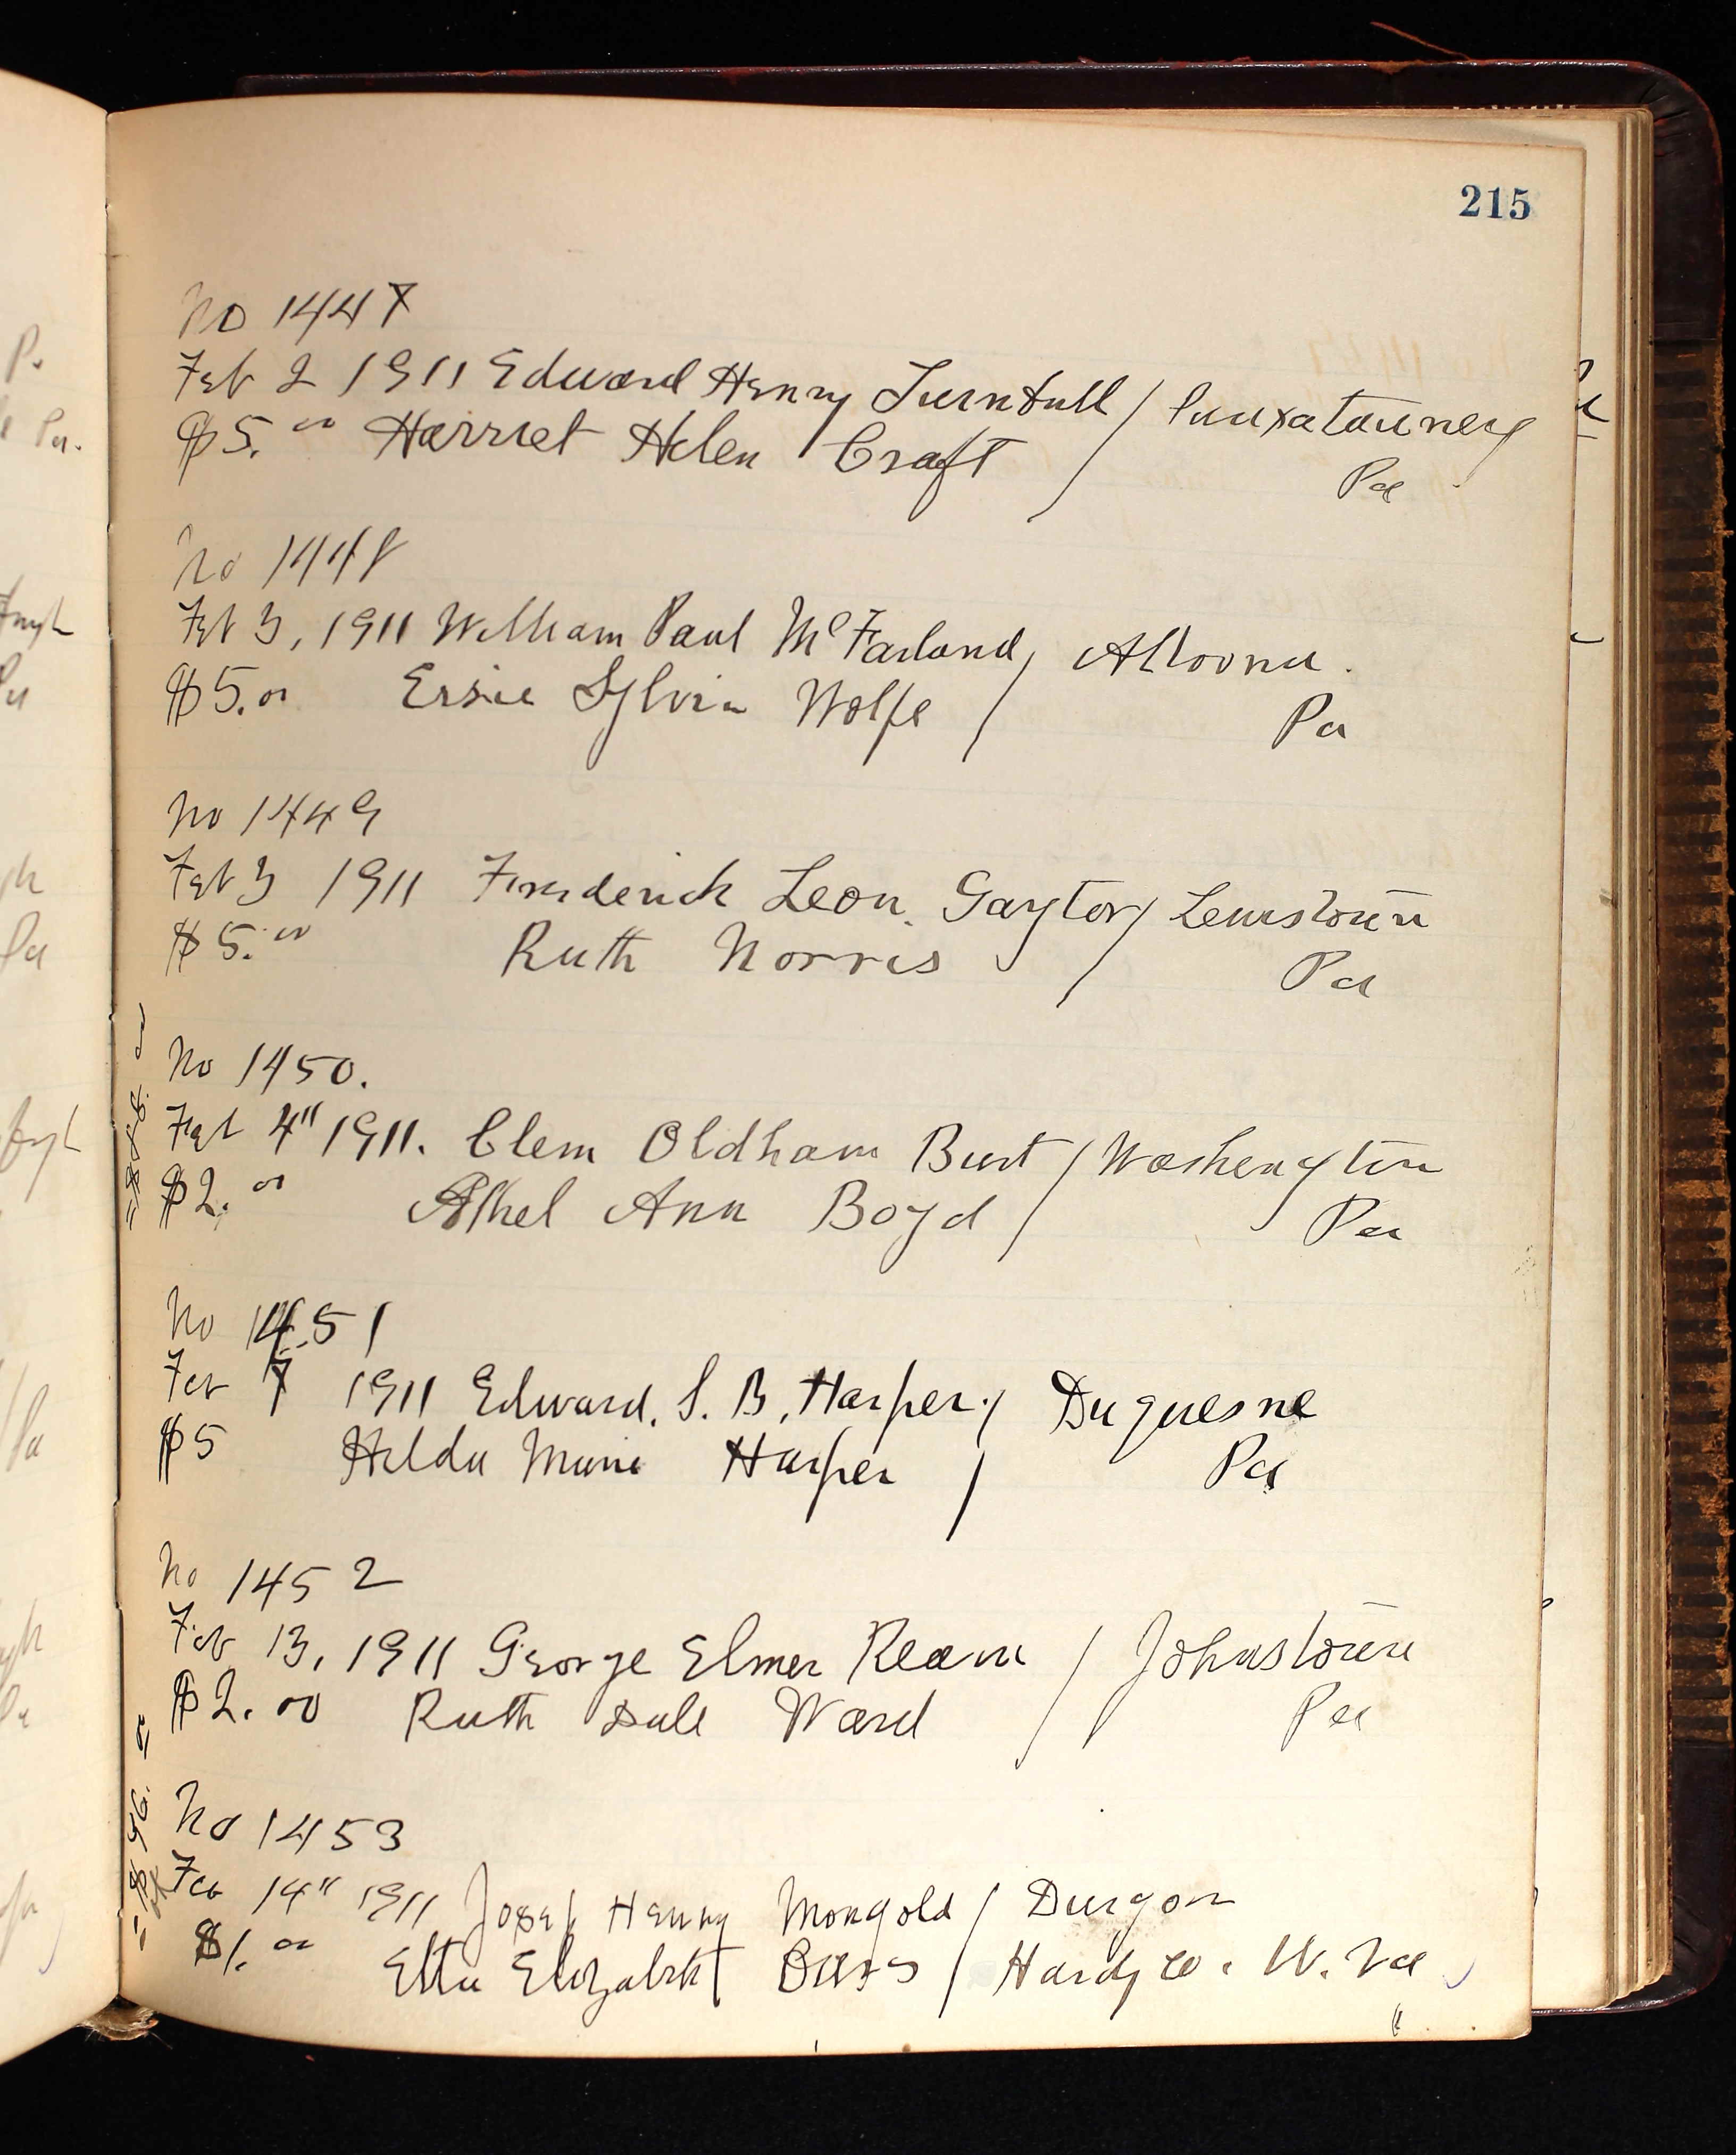 215
No 1447
Feb 2 1911 Edward Henry Turnbull / Punxatauney
$5.00 Harriet Helen Craft / Pa
No 1448
Feb 3, 1911 William Paul McFarland / Altoona.
$5.00 Essie Sylvia Wolfe / Pa
No 1449
Feb 3 1911 Frederick Leon Gaytor / Lewistown
$5.00 Ruth Norris / Pa
No 1450.
Feb 4" 1911. Clem Oldham Burt / Washington
$2.00 Athel Ann Boyd / Pa
No 1451
Feb 7 1911 Edward. S. B. Harper / Duquesne
$5 Hilda Marie Harper / Pa
No 1452
Feb 13, 1911 George Elmer Ream / Johnstown
$2.00 Ruth Dale Ward / Pa
No 1453
Feb 14" 1911 Josef Henry Mongold / Durgon
$1.00 Etta Elizabeth / Hardy co. W. Va